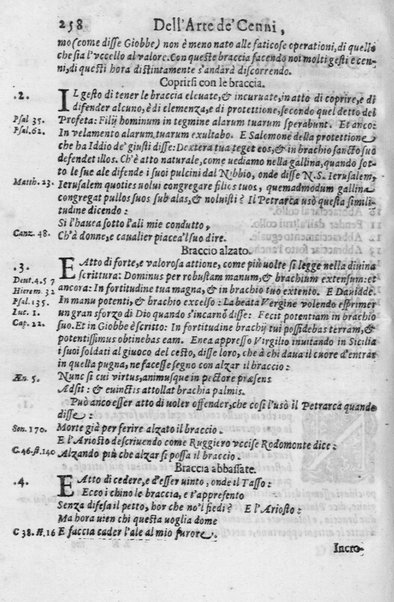 258 Dell'Arte de' Cenni,
mo (come disse Giobbe) non è meno nato alle faticose operationi, di quello
che sia l'vccello al valore. Con queste braccia facendo noi molti gesti e cen-
ni, di questi hora distintamente s'andarà discorrendo.
Coprirsi con le braccia.
.2. IL gesto di tener le braccia eleuate, & incuruate, in atto di coprire, e di
difender alcuno, è di clemenza, e di protettione, secondo quel detto del
Psal. 35. Profeta: Filij hominum in tegmine alarum tuarum sperabunt. Et anco:
Psal. 62. In velamento alarum, tuarum exultabo. E Salomone della protettione
che ha Iddio de' giusti disse: Dextera tua teget eos, & in brachio sancto suo
defendet illos. Ch'è atto naturale, come uediamo nella gallina, quando sot-
to le sue ale difende i suoi pulcini dal Nibbio, onde disse N.S. Ierusalem,
Matth. 23. Ierusalem quoties uolui congregare filios tuos, quemadmodum gallina
congregat pullos suos sub alas, & noluisti? Il Petrarca usò questa simili-
tudine dicendo:
Si l'hauea sotto l'ali mie condutto,
Canz. 48. Ch'à donne, e caualier piacea il suo dire.
Braccio alzato.
.3. E Atto di forte, e valorosa attione, come più volte si legge nella diuina
Deut. 4. 5 7 scrittura: Dominus per robustam manum, & brachium extensum. et
Hierem. 32 ancora: In fortitudine tua magna, & in brachio tuo extento. E Dauidde.
Psal. 135. In manu potenti, & brachio excelso: La beata Vergine volendo esprimer
Luc. 1. un gran sforzo di Dio quando s'incarnò disse: Fecit potentiam in brachio
Cap. 22. suo. Et in Giobbe è scritto: In fortitudine brachij tui possidebas terram, &
potentissimus obtinebas eam. Enea appresso Virgilio inuitando in Sicilia
i suoi soldati al giuoco del cesto, disse loro, che à chi daua il cuore d'entrar
in quella pugna, ne facesse segno con alzar il braccio:
Æn. 5. Nunc si cui virtus, animusque in pectore præsens
Adsit: & euinctis attollat brachia palmis.
Può anco esser atto di uoler offender, che così l'usò il Petrarca quando
disse:
Son. 170. Morte già per ferire alzato il braccio.
E l'Ariosto descriuendo come Ruggiero vccise Rodomonte dice:
C. 46. st. 140 Alzando più che alzar si possa il braccio.
Braccia abbassate.
.4. E Atto di cedere, e d'esser uinto, onde il Tasso:
Ecco i chino le braccia, e t'appresento
Senza difesa il petto, hor che no'l fiedi? E l'Ariosto:
Ma hora uien chi questa voglia dome
C 38. st. 16 E faccia cader l'ale al mio furore.
Incro-